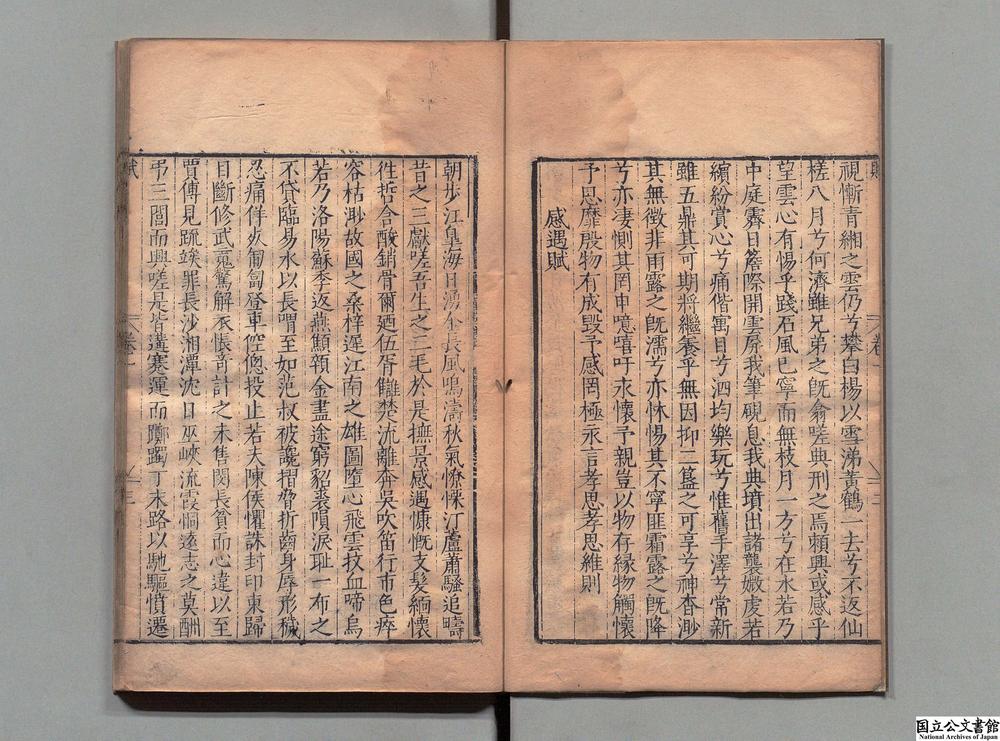 視慚青緗之雲仍兮攀白楊以雪涕黃鶴一去兮不返仙
槎八月兮何濟雖兄弟之既翕嗟典刑之焉賴興或感乎
望雲心有惕乎踐石風已寧而無枝月一方兮在水若乃
中庭霽日簷際開雲屏我筆硯息我典墳出諸襲媺虔若
繽紛賞心兮痛偕寓目兮泗均樂玩兮惟舊手澤兮常新
雖五鼎其可期將繼養乎無因抑二簋之可享兮神杳渺
其無徵非雨露之既濡兮亦怵惕其不寧匪霜露之既降
兮亦凄惻其罔申噫嘻吁永懷予親豈以物存緣物觸懷
予思靡殷物有成毀予感罔極永言孝思孝思維則
感遇賦
朝步江皐海日湧金長風鳴濤秋氣憭慄汀蘆蕭騷追疇
昔之三獻嗟吾生之二毛於是撫景感遇慷慨支髮緬懷
徃哲含酸銷骨爾廼伍胥讎楚流離奔吳吹笛行市色瘁
容枯渺故國之桑梓遲江南之雄圖墮心飛雲抆血啼烏
若乃洛陽蘇季返燕顦顇金盡途窮貂裘隕淚耻一布之
不貸臨易水以長喟至如范叔被讒摺脅折齒身辱形穢
忍痛佯死匍匐登車倥傯投止若夫陳侯懼誅封印東歸
目斷修武竟鷔解衣悵奇計之未售閔長貧而心違以至
賈傅見䟽竢罪長沙湘潭沈日巫峽流霞恫遠志之莫酬
弔三閭而興嗟是皆遘蹇運而躑躅丁末路以馳驅憤遷
賦
卷一
三
国立公文書館
National Archives of Japan